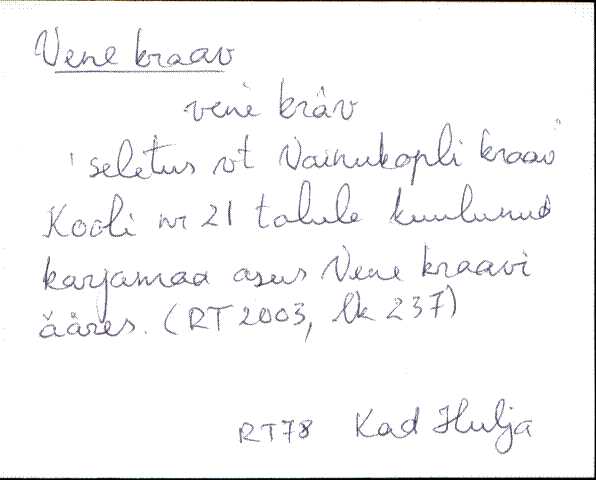 Vene kraav
vene̍ krāv
'seletus vt Vainukopli kraav"
Kooli nr 21 talule kuulunud
karjamaa asus Vene kraavi
ääres. (RT 2003, lk 237)
RT78 Kad Hulja